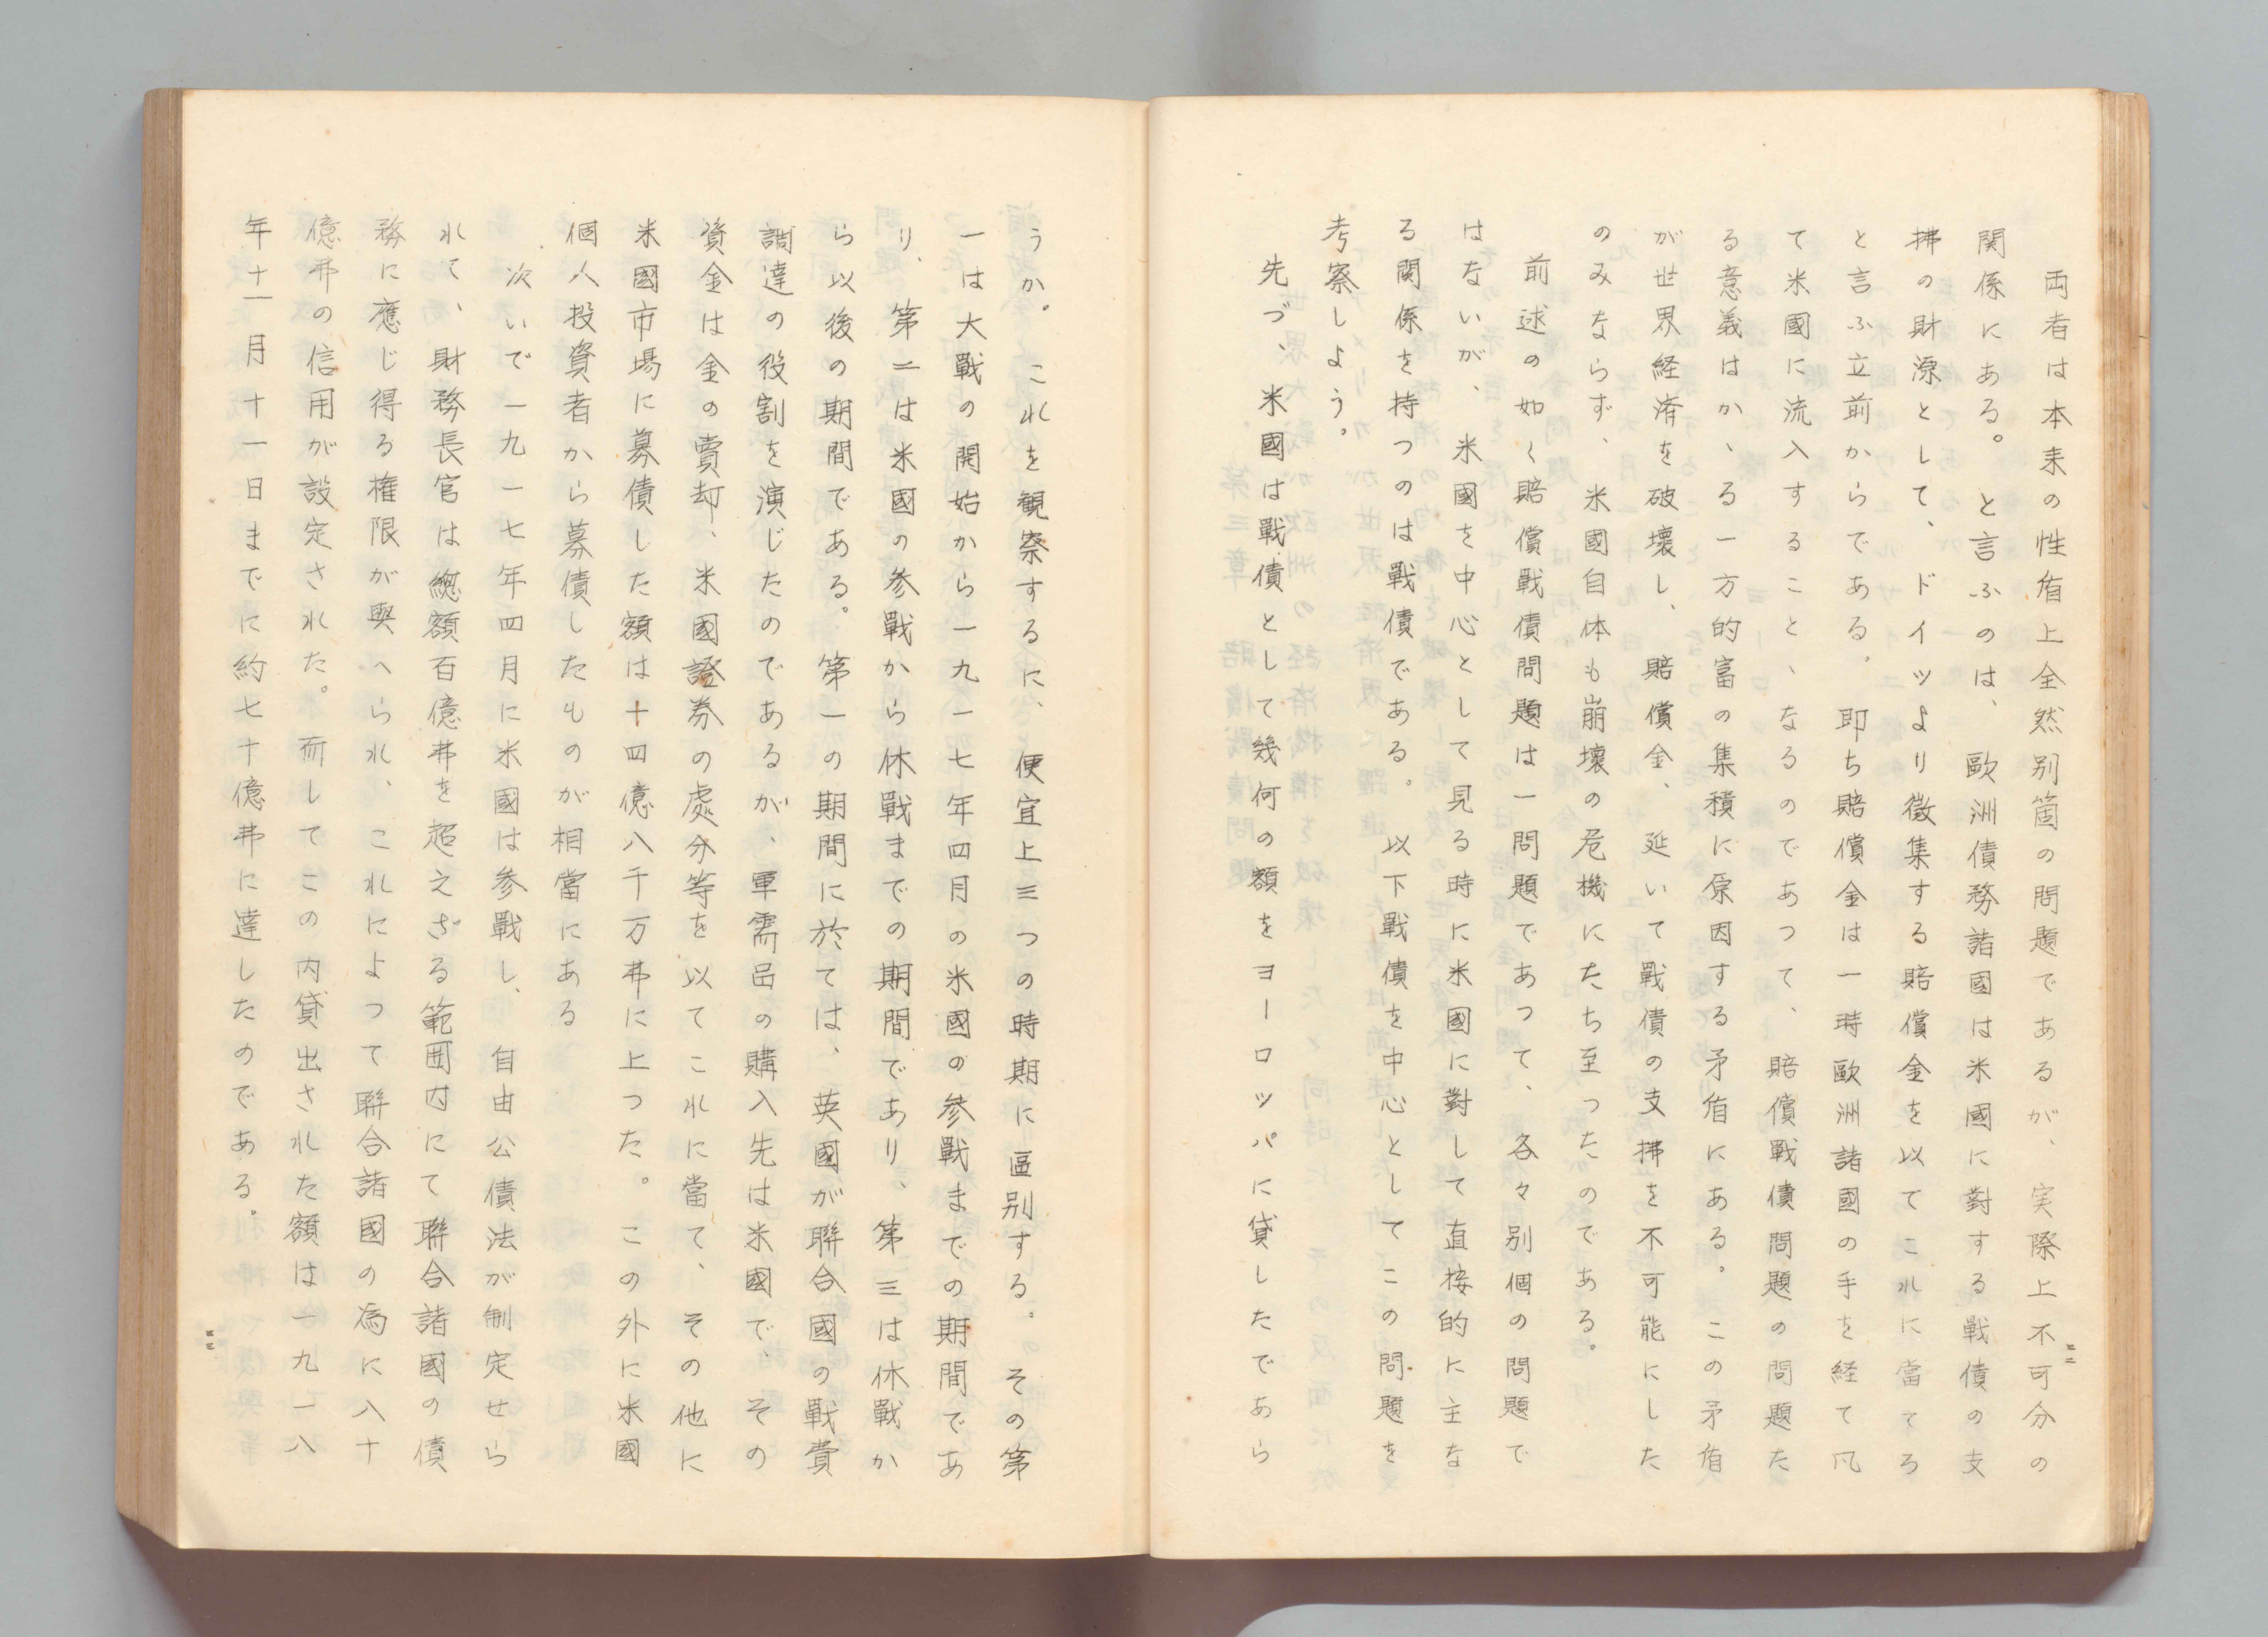 両者は本来の性質上全然別箇の問題であるが、実際上不可分の
関係にある。と言ふのは、歐洲債務諸國は米國に對する戦債の支
拂の財源として、ドイツより徴集する賠償金を以てこれに當てる
と言ふ立前からである。卽ち賠償金は一時歐洲諸國の手を経て凡
て米國に流入すること、なるのであつて、賠償戰債問題の問題た
る意義はかゝる一方的富の集積に原因する矛盾にある。この矛盾
が世界経済を破壊し、賠償金、延いて戰債の支拂を不可能にした
のみならず、米國自体も崩壊の危機にたち至つたのである。
前述の如く賠償戰債問題は一問題であつて、各々別個の問題で
はないが、米國を中心として見る時に米國に對して直接的に主な
る関係を持つのは戰債である。以下戰債を中心としてこの問題を
考察しよう。
先づ、米國は戰債として幾何の額をヨーロッパに貸したであら
四二
うか。これを観察するに、便宜上三つの時期に區別する。その第
一は大戰の開始から一九一七年四月の米國の参戰までの期間であ
り、第二は米國の参戰から休戰までの期間であり、第三は休戰か
ら以後の期間である。第一の期間に於ては、英國が聯合國の戰費
調達の役割を演じたのであるが、軍需品の購入先は米國で、その
資金は金の賣却、米國證券の處分等を以てこれに當て、その他に
米國市場に募債した額は十四億八千万弗に上つた。この外に米國
個人投資者から募債したものが相當にある
次いで一九一七年四月に米國は参戰し、自由公債法が制定せら
れて、財務長官は總額百億弗を超えざる範囲内にて聯合諸國の債
務に應じ得る権限が與へられ、これによつて聯合諸國の為に八十
億弗の信用が設定された。而してこの内貸出された額は一九一八
年十一月十一日までに約七十億弗に達したのである。
四三